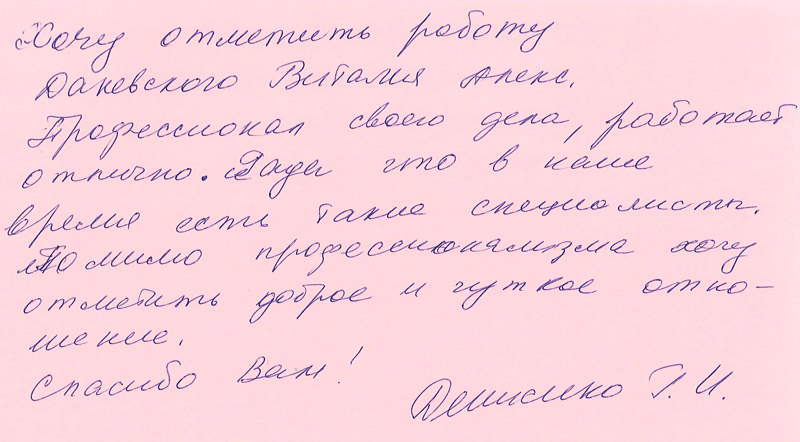 Хочу отметить работу
Даневского Виталия Алекс.
Профессионал своего дела, работает
отлично. Рада что в наше
время есть такие специалисты.
Помимо профессионализма хочу
отметить доброе и чуткое отно-
шение.
Спасибо Вам!
Денисенко Г. И.